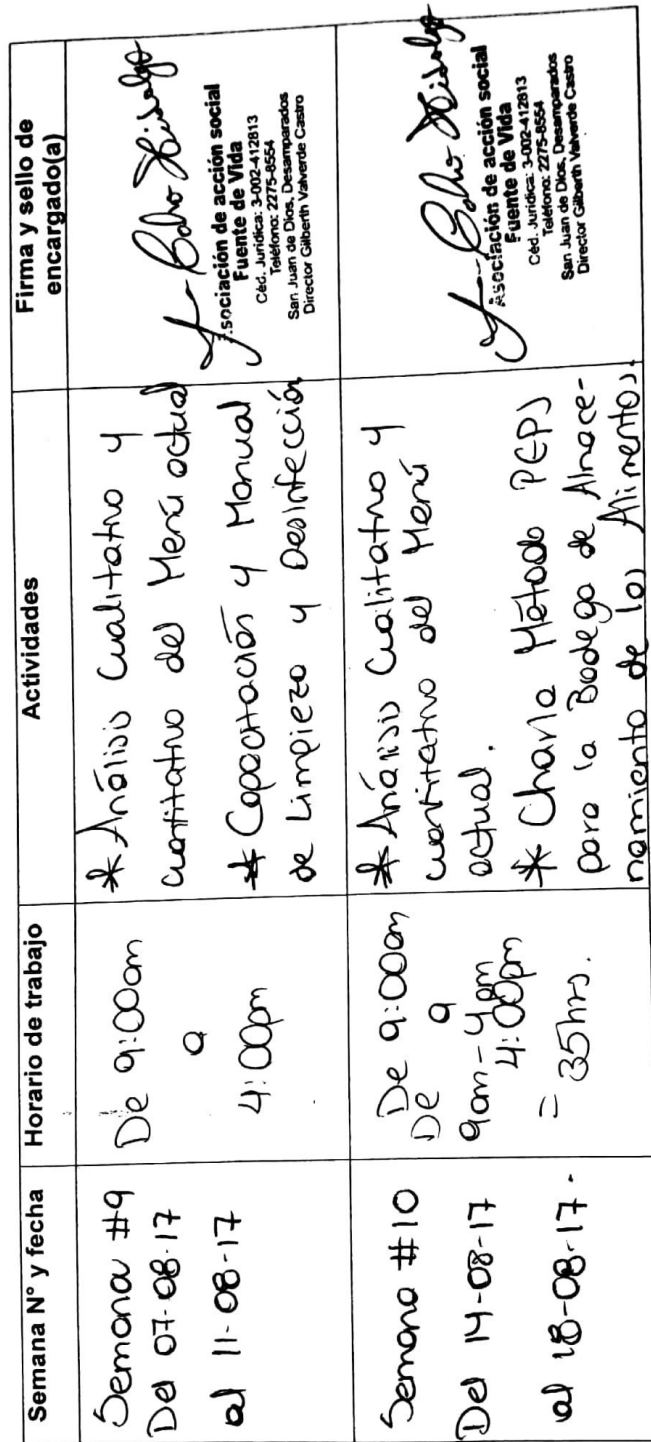 Semana N° y fecha
Horario de trabajo
Actividades
Firma y sello de
encargado(a)
Semana #9
Del 07-08-17
al 11-08-17
De 9:00am
a
4:00pm
* Análisis Cualitativo y
cuantitativo del Menú actual
* Capacitación y Manual
de Limpieza y Desinfección
Asociación de acción social
Fuente de Vida
Céd. Jurídica: 3-002-412813
Teléfono: 2275-8554
San Juan de Dios, Desamparados
Director Gilberth Valverde Castro
Semana #10
Del 14-08-17
al 18-08-17.
De 9:00am
De a
9am-4pm
4:00pm
= 35hrs.
* Análisis Cualitativo y
cuantitativo del Menú
actual.
* Charla Método PEPS
para la Bodega de Almace-
namiento de los Alimentos.
Asociación de acción social
Fuente de Vida
Céd. Jurídica: 3-002-412813
Teléfono: 2275-8554
San Juan de Dios, Desamparados
Director Gilberth Valverde Castro